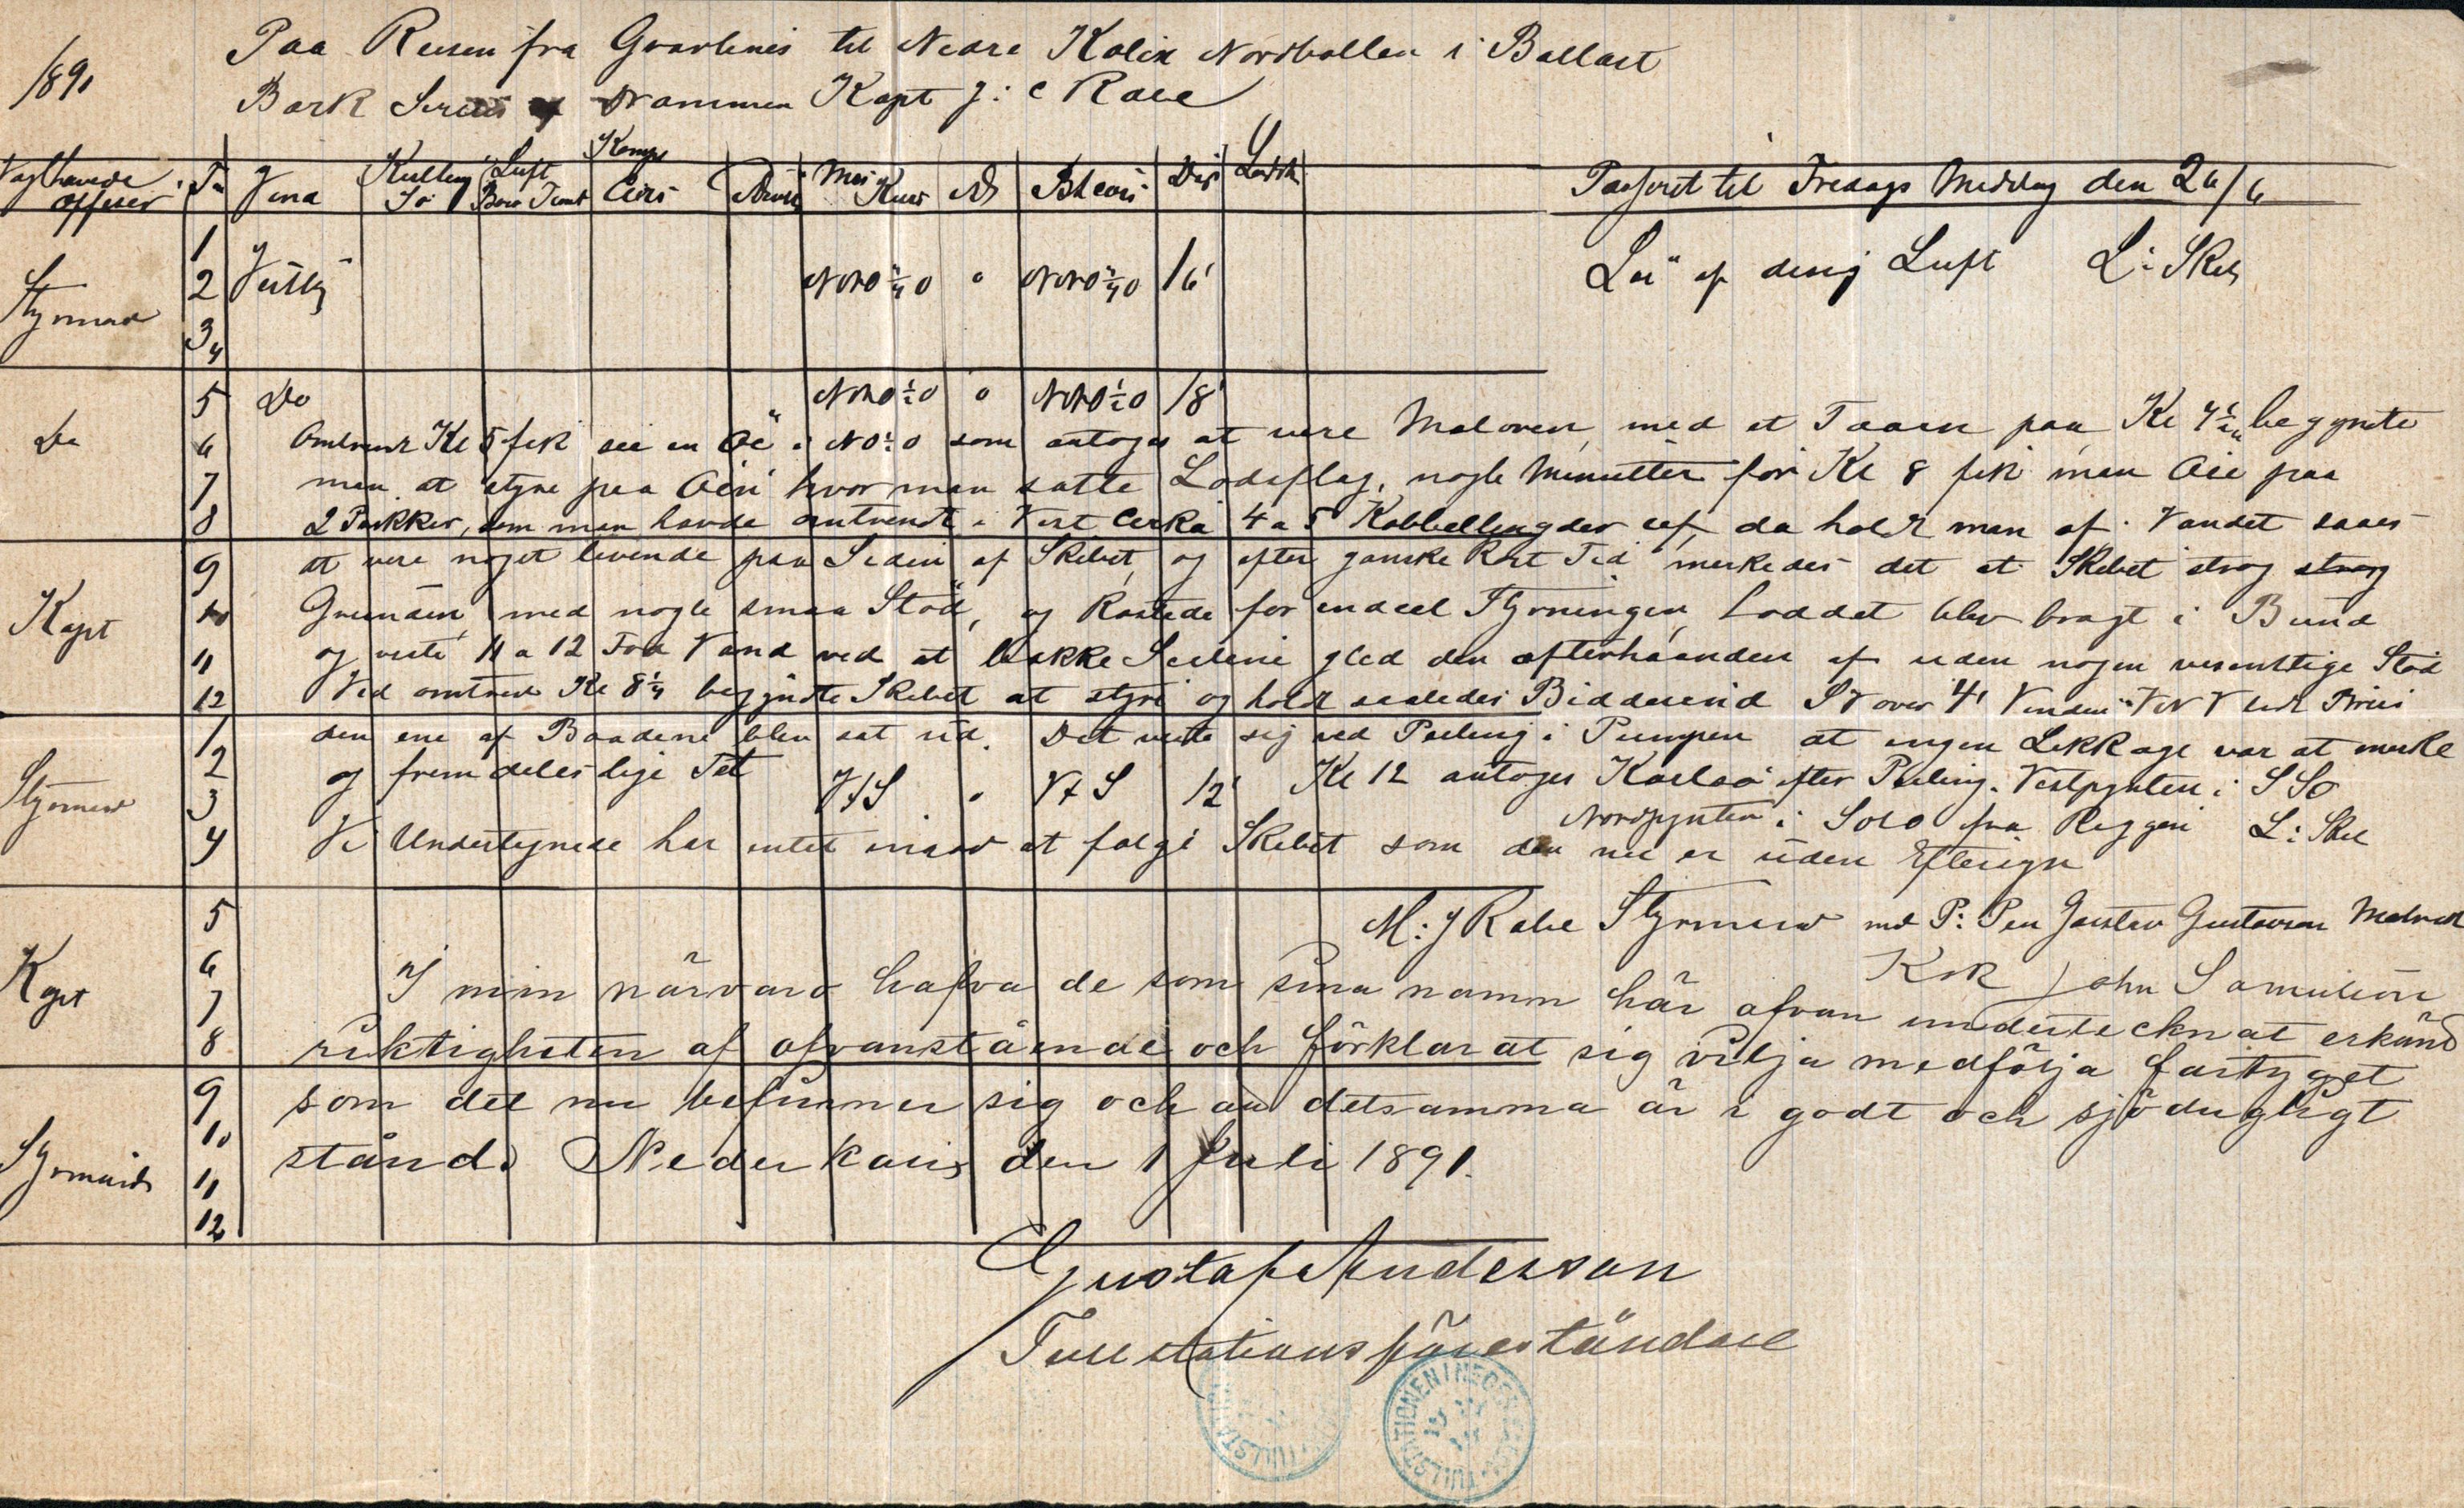 1891
Paa Reisen fra Gravlenis til Nedre Kalix Nordbotten i Ballast
Bark Sirius af Drammen Kapt J: C Rabe
Vagthavende offiser Tm Vind Kulling Sø Luft Baro Temt Komp Curs Afdrift Mis Kurs Ad Bh Curs Dis Lodsk Passeret til Fredags Middag den 26/6
Styrmand 1 2 3 4 Vestlig NNO¾O 0 NNO¾O 16' Lei af disig Luft L: Skib
Do 5 Do NNO½O 0 NNO½O 18'
6 Omtrent Kl 5 fik see en Öe i NO½O som antoges at være Maloren, med et Taarn paa Kl 7½ begynte
7 man at styre paa Öen hvor man satte Lodsflag, nogle Minutter før Kl 8 fik man Öie paa
8 2 Prikker, som man havde omtrendt i Vest Cirka 4 a 5 Kabbellengder af, da holdt man af. Vandet saaes
Kapt 9 at være noget levende paa Siden af Skibet, og efter ganske Kort Tid merkedes det at Skibet strog strog
10 Grunden, med nogle smaa Stød, og Kastede for endeel Styrningen, Loddet blev bragt i Bund
11 og viste 11 a 12 Fod Vand ved at bakke Seilene gled den efterhaanden af uden nogen vesenttige Stød
12 Ved omtrent Kl 8¼ begyndte Skibet at styre og holdt saaledes Biddevind SV over 4' Vinden VNV let Bris
Styrmand 1 den ene af Baadene blev sat ud. Det viste sig ved Peiling i Pumpen at ingen Lekkage var at merke
2 og fremdeles lige Tet VtS 0 VtS 12' Kl 12 antoges Karlsø efter Peiling. Vestpynten i SSO
3 Nordpynten i SOtO fra Riggen L: Skib
4 Vi Undertegnede har intet imod at følge Skibet som den nu er uden Eftersyn
Kapt 5 M: J Rabe Styrmand md P: Pen Gustav Gustavson Matros
6 Kok John Samuelson
7 I min närvaro hafva de som sina namn här ofvan undertecknat erkänt
8 riktigheten af ofvanstående och förklarat sig vilja medfölja fartyget
Styrmand 9 som det nu befinner sig och att detsamma är i godt och sjödugligt
10 stånd. Neder Kalix den 1 Juli 1891.
11
12
Gustaf Andersson
Tullstationsföreståndare
TULLSTATIONEN I NEDER